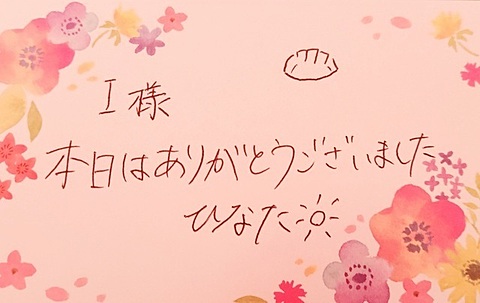 I様
本日はありがとうございました
ひなた